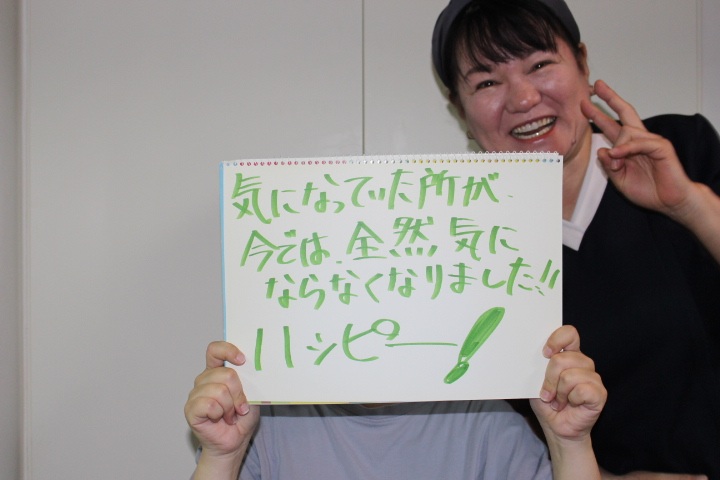 気になっていた所が、
今では、全然気に
ならなくなりました!!
ハッピー!